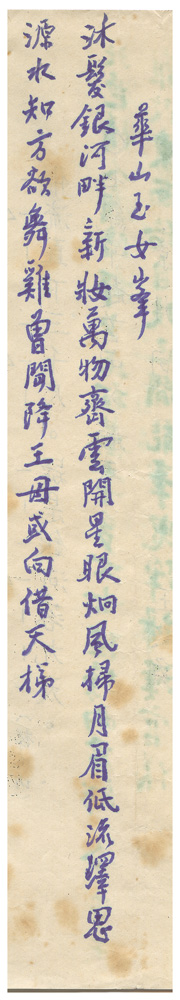 華山玉女峯
沐髮銀河畔新妝萬物齊雲開星眼炯風掃月眉低流澤思
源水知方欲舞雞曾聞降王母或向借天梯